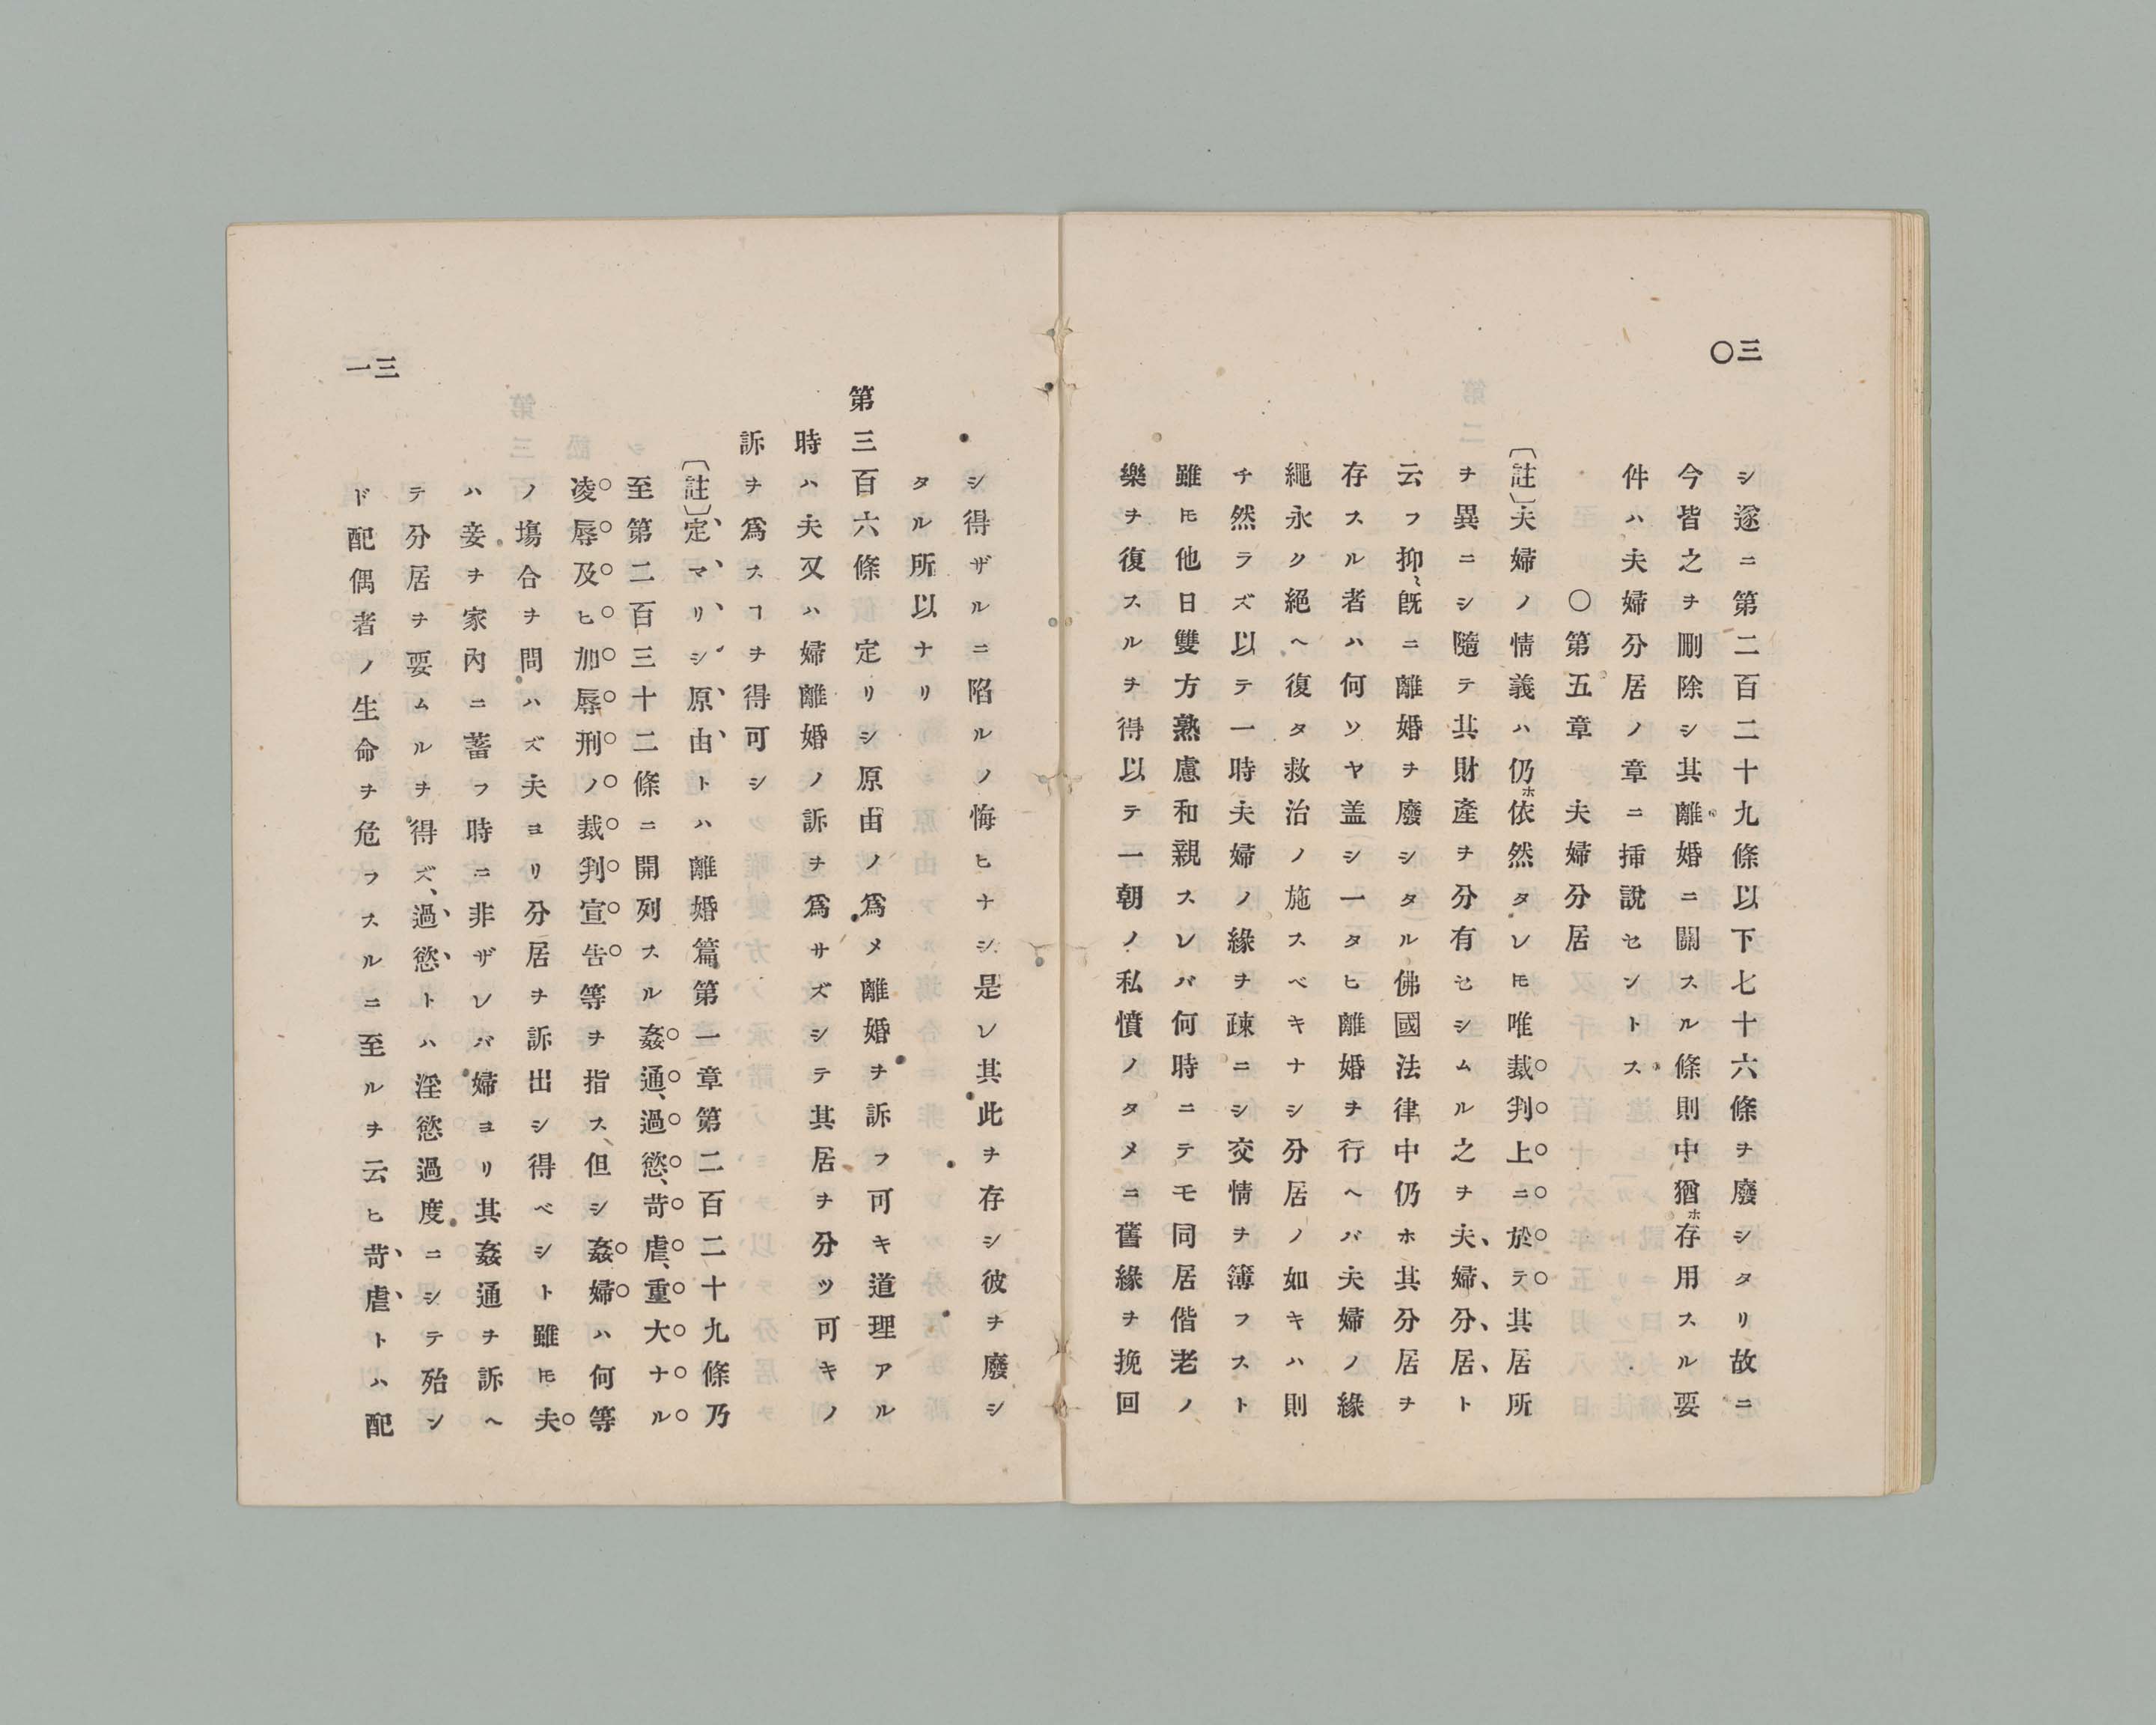 三〇
シ遂ニ第二百二十九條以下七十六條ヲ廢シタリ故ニ
今皆之ヲ刪除シ其離婚ニ關スル條則中猶ホ存用スル要
件ハ夫婦分居ノ章ニ揷說セントス
〇第五章　夫婦分居
〔註〕夫婦ノ情義ハ仍ホ依然タレ𪜈唯裁判上ニ於テ其居所
ヲ異ニシ隨テ其財產ヲ分有セシムル之ヲ夫婦分居ト
云フ抑〻旣ニ離婚ヲ廢シタル佛國法律中仍ホ其分居ヲ
存スル者ハ何ソヤ盖シ一タヒ離婚ヲ行ヘバ夫婦ノ緣
繩永ク絕ヘ復タ救治ノ施スベキナシ分居ノ如キハ則
チ然ラズ以テ一時夫婦ノ緣ヲ疎ニシ交情ヲ簿フスト
雖𪜈他日雙方熟慮和親スレバ何時ニテモ同居偕老ノ
樂ヲ復スルヲ得以テ一朝ノ私憤ノタメニ舊緣ヲ挽回
三一
シ得ザルニ陷ルノ悔ヒナシ是レ其此ヲ存シ彼ヲ廢シ
タル所以ナリ
第三百六條　定リシ原由ノ爲メ離婚ヲ訴フ可キ道理アル
時ハ夫又ハ婦離婚ノ訴ヲ爲サズシテ其居ヲ分ツ可キノ
訴ヲ爲スヿヲ得可シ
〔註〕定マリシ原由トハ離婚篇第一章第二百二十九條乃
至第二百三十二條ニ開列スル姦通、過慾、苛虐、重大ナル
凌辱及ヒ加辱刑ノ裁判宣告等ヲ指ス但シ姦婦ハ何等
ノ塲合ヲ問ハズ夫ヨリ分居ヲ訴出シ得ベシト雖𪜈夫
ハ妾ヲ家內ニ蓄フ時ニ非ザレバ婦ヨリ其姦通ヲ訴ヘ
テ分居ヲ要ムルヲ得ズ、過慾トハ淫慾過度ニシテ殆ン
ド配偶者ノ生命ヲ危フスルニ至ルヲ云ヒ苛虐トハ配